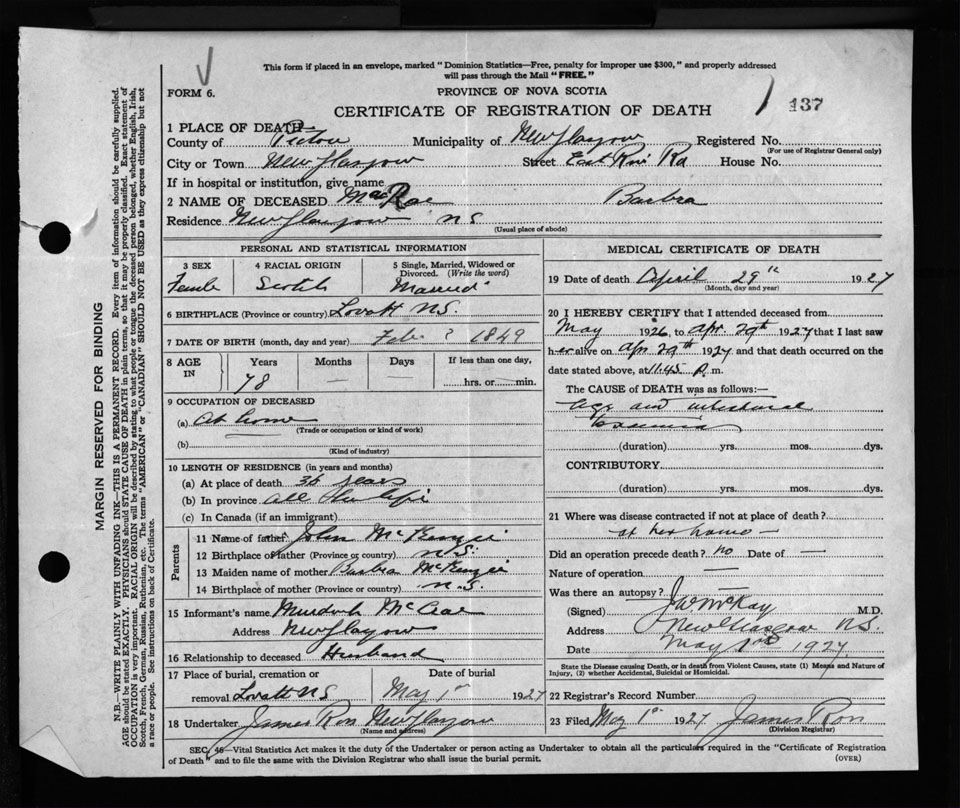 This form if placed in an envelope, marked "Dominion Statistics—Free, penalty for improper use $300," and properly addressed
will pass through the Mail "FREE."
FORM 6.
PROVINCE OF NOVA SCOTIA
CERTIFICATE OF REGISTRATION OF DEATH
137
1 PLACE OF DEATH—
County of Pictou Municipality of New Glasgow Registered No.
(For use of Registrar General only)
City or Town New Glasgow Street East River Rd House No.
If in hospital or institution, give name
2 NAME OF DECEASED MacRae Barbra
Residence New Glasgow N S
(Usual place of abode)
PERSONAL AND STATISTICAL INFORMATION
3 SEX 4 RACIAL ORIGIN 5 Single, Married, Widowed or
Divorced. (Write the word)
Female Scotch Married
6 BIRTHPLACE (Province or country) Lovatt N.S.
7 DATE OF BIRTH (month, day and year) Feb ? 1849
8 AGE IN Years Months Days If less than one day,
78 — — hrs. or min.
9 OCCUPATION OF DECEASED
(a) At home
(Trade or occupation or kind of work)
(b)
(Kind of industry)
10 LENGTH OF RESIDENCE (in years and months)
(a) At place of death 36 years
(b) In province all her life
(c) In Canada (if an immigrant)
Parents
11 Name of father John McKenzie
12 Birthplace of father (Province or country) N.S.
13 Maiden name of mother Barbra McKenzie
14 Birthplace of mother (Province or country) N.S.
15 Informant's name Murdoch McRae
Address New Glasgow
16 Relationship to deceased Husband
17 Place of burial, cremation or Date of burial
removal Lovatt N S May 1st 1927
18 Undertaker James Ross New Glasgow
(Name and address)
MEDICAL CERTIFICATE OF DEATH
19 Date of death April 29th 1927
(Month, day and year)
20 I HEREBY CERTIFY that I attended deceased from
May 1926 to Apr. 29th 1927 that I last saw
her alive on Apr 29th 1927 and that death occurred on
date stated above, at 11.45 P.m.
The CAUSE of DEATH was as follows:—
age and intestinal
toxemia
(duration) yrs. mos. dys.
CONTRIBUTORY
(duration) yrs. mos. dys.
21 Where was disease contracted if not at place of death?
at her home —
Did an operation precede death? no Date of —
Nature of operation —
Was there an autopsy?
(Signed) J W McKay M.D.
Address New Glasgow N S.
Date May 1927
State the Disease causing Death, or in death from Violent Causes, state (1) Means and Nature of
Injury, (2) whether Accidental, Suicidal or Homicidal.
22 Registrar's Record Number
23 Filed May 1st 1927 James Ross
(Division Registrar)
SEC. 46—Vital Statistics Act makes it the duty of the Undertaker or person acting as Undertaker to obtain all the particulars required in the "Certificate of Registration
of Death" and to file the same with the Division Registrar who shall issue the burial permit.
(OVER)
MARGIN RESERVED FOR BINDING
N.B.—WRITE PLAINLY WITH UNFADING INK—THIS IS A PERMANENT RECORD. Every item of information should be carefully supplied.
AGE should be stated EXACTLY. PHYSICIANS should STATE CAUSE OF DEATH in plain terms, so that it may be properly classified. Exact statement of
OCCUPATION is very important. RACIAL ORIGIN will be described by stating to what people or tongue the deceased person belonged, whether English, Irish,
Scotch, French, German, Russian, Ruthenian, etc. The terms "AMERICAN" or "CANADIAN" SHOULD NOT BE USED as they express citizenship but not
a race or people. See instructions on back of Certificate.